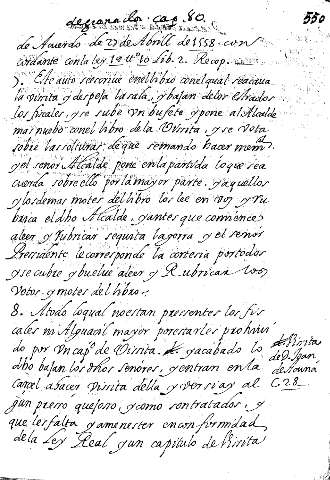 de granada. cap. 80.
550
de Acuerdo de 27 de Abrill de 1558. con
cordante con la ley 19. tt.º 10 lib. 2. Recop.
7. Este auto se escriue en el libro con el qual se acaua
la visita y despeja la sala, y bajan de los estrados
los fiscales, y se sube Un bufete y pone al Alcalde
mas nuebo con el libro de la Visita, y se vota
sobre las solturas, de que se mando hacer mem.ª
y el señor Alcalde pone en la partida lo que se a
cuerda sobre ello por la mayor parte. y aquellos
y los demas motes del libro los lee en voz y ru
brica el dho Alcalde, y antes que comience
a leer y rubricar se quita la gorra y el señor
Presidente le corresponde la cortesia por todos
y se cubre y buelue a leer y Rubricar los
Votos y motes del libro.
8. A todo lo qual no estan presentes los fis
cales ni Alguasil mayor por estarles prohiui
do por Un cap.º de Visita. y acabado lo
dho bajan los dhos señores, y entran en la
carcel a hacer visita della y ver si ay al
gun preso quejoso, y como son tratados, y
que les falta y a menester en conformidad
de la Ley Real y un capitulo de Visita
de Visita
de D. Juan
de
C. 28